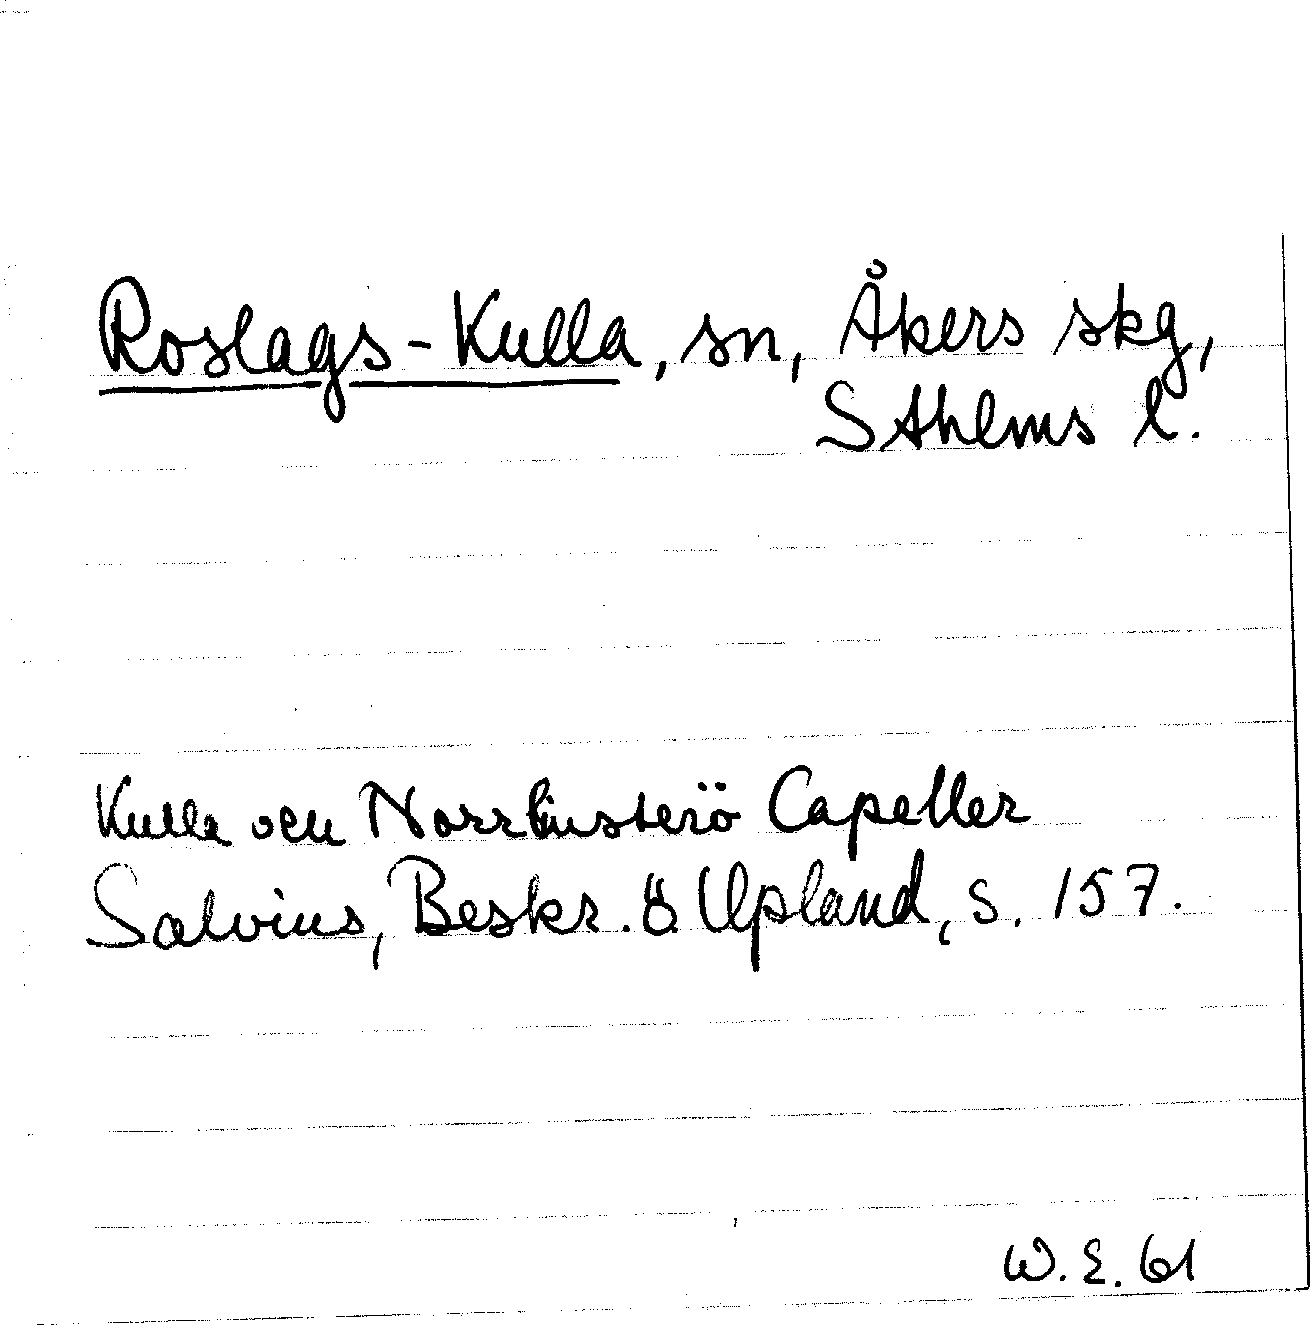 Roslags-Kulla, sn, Åkers skg,
Sthlms l.
Kulla och Norrliusterö Capeller
Salvius, Beskr. ö. Upland, s. 157.
W. E. 61